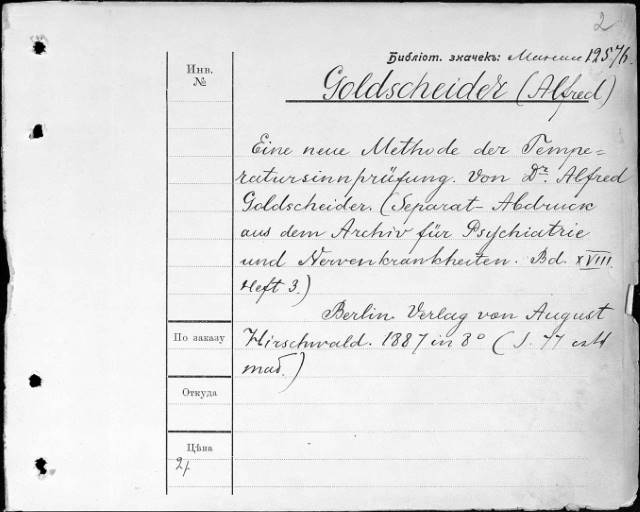 2
Библіот. значекъ: 125/6.
Инв.
№
Goldscheider (Alfred)
Eine neue Methode der Tempe=
ratursinnprüfung. Von Dr. Alfred
Goldscheider. (Separat-Abdruck
aus dem Archiv für Psychiatrie
und Nervenkrankheiten. Bd. XVIII.
Heft 3.)
Berlin. Verlag von August
По заказу
Hirschwald. 1887 in 8º (S. 77
Откуда
Цѣна